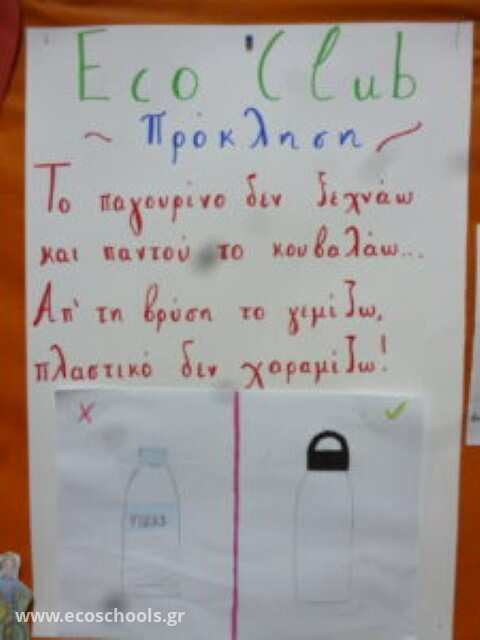 Eco Club
~ Πρόκληση ~
Το παγουρίνο δεν ξεχνάω
και παντού το κουβαλάω...
Απ' τη βρύση το γεμίζω,
πλαστικό δεν χαραμίζω!
www.ecoschools.gr